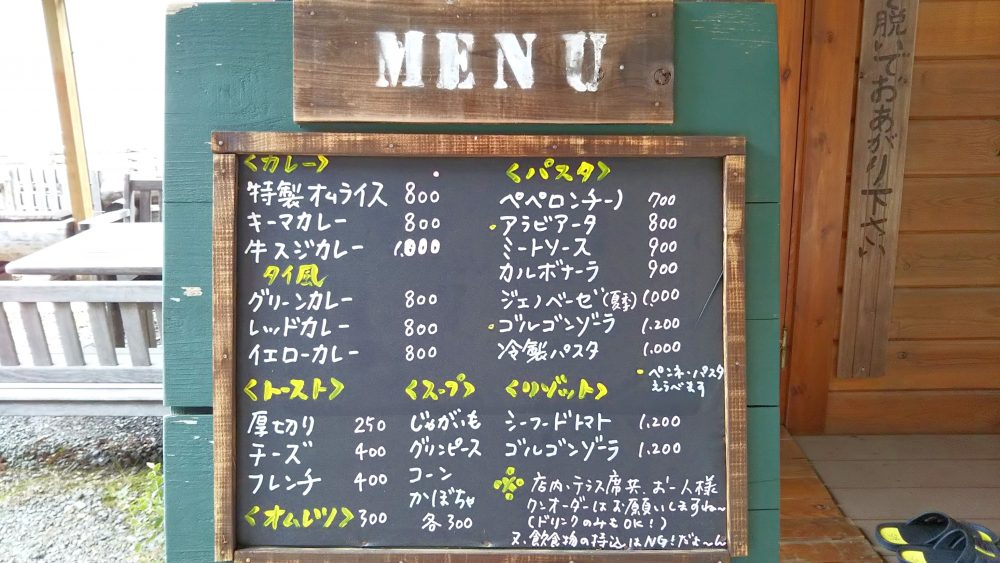 MENU
<カレー>
特製オムライス 800
キーマカレー 800
牛スジカレー 1,000
タイ風
グリーンカレー 800
レッドカレー 800
イエローカレー 800
<トースト>
厚切り 250
チーズ 400
フレンチ 400
<オムレツ> 300
<スープ>
じゃがいも
グリンピース
コーン
かぼちゃ
各300
<パスタ>
ペペロンチーノ 700
・アラビアータ 800
ミートソース 900
カルボナーラ 900
ジェノベーゼ(夏季) 1,000
・ゴルゴンゾーラ 1,200
冷製パスタ 1,000
・ペンネ・パスタ
えらべます
<リゾット>
シーフードトマト 1,200
ゴルゴンゾーラ 1,200
※ 店内・テラス席共、お一人様
ワンオーダーはお願いしますね〜
(ドリンクのみもOK!)
又、飲食物の持込はNG!だょ〜ん
脱いでおあがり下さい